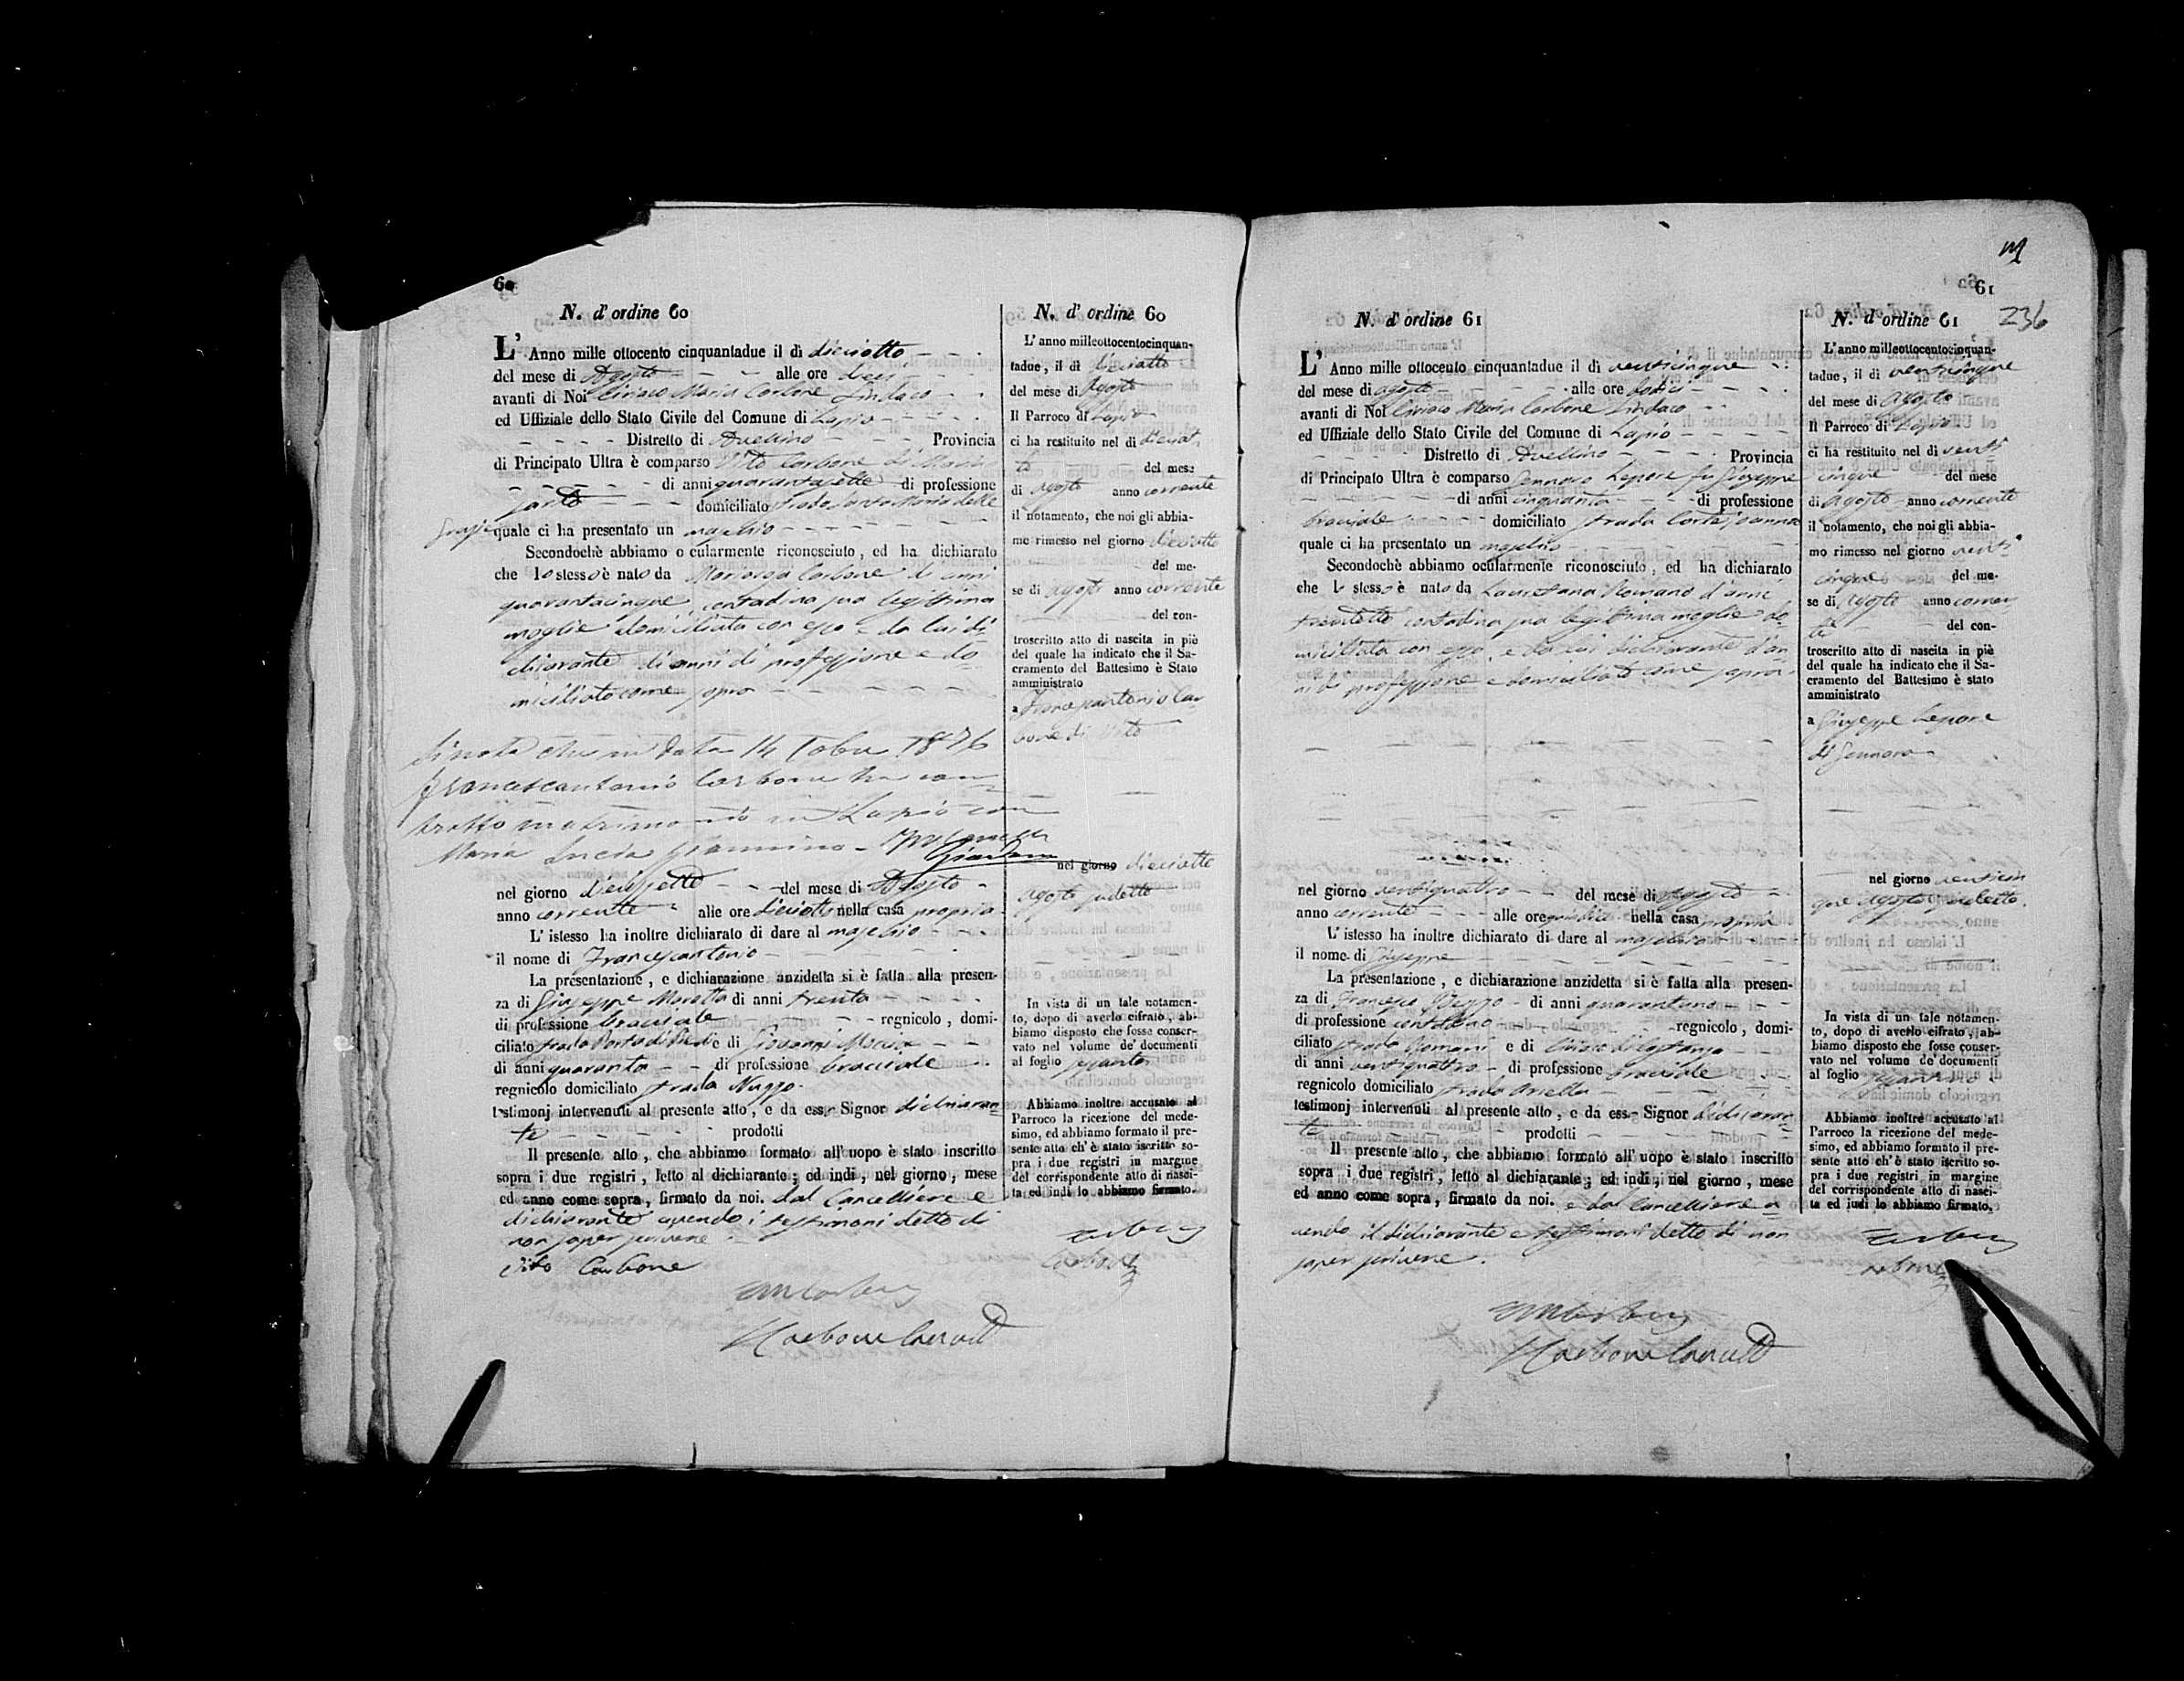 60
N. d' ordine 60
L' Anno mille ottocento cinquantadue il dì diciotto
del mese di Agosto alle ore dieci
avanti di Noi Ciriaco Maria Carbone Sindaco
ed Uffiziale dello Stato Civile del Comune di Lapio
Distretto di Avellino Provincia
di Principato Ultra è comparso Vito Carbone di
di anni quarantasette di professione
sarto domiciliato strada Santa Maria delle
Grazie quale ci ha presentato un maschio
Secondochè abbiamo ocularmente riconosciuto, ed ha dichiarato
che lo stesso è nato da Carbone di anni
quarantacinque, contadina sua legittima
moglie domiciliata con esso e da lui di-
chiarante di anni di professione e do
miciliato come sopra
Si nota che in data 14 1876
Francescantonio Carbone ha con
tratto matrimonio in Lapio con
Maria Lucia
nel giorno diciassette del mese di Agosto
anno corrente alle ore diciotto nella casa propria
L' istesso ha inoltre dichiarato di dare al maschio
il nome di Francescantonio
La presentazione, e dichiarazione anzidetta si è fatta alla presen-
za di Giuseppe di anni trenta
di professione bracciale regnicolo, domi-
ciliato strada e di Giovanni
di anni quaranta di professione bracciale
regnicolo domiciliato strada Nuzzo
testimonj intervenuti al presente atto, e da esso Signor dichiaran
te prodotti
Il presente atto, che abbiamo formato all' uopo è stato inscritto
sopra i due registri, letto al dichiarante; ed indi, nel giorno, mese
ed anno come sopra, firmato da noi. dal Cancelliere e
dichiarante avendo i testimoni detto di
non saper scrivere.
Vito Carbone
N. d' ordine 60
L' anno milleottocentocinquan-
tadue, il dì diciotto
del mese di Agosto
Il Parroco di Lapio
ci ha restituito nel dì diciot
to del mese
di Agosto anno corrente
il notamento, che noi gli abbia-
mo rimesso nel giorno diciotto
del me-
se di agosto anno corrente
del con-
troscritto atto di nascita in piè
del quale ha indicato che il Sa-
cramento del Battesimo è Stato
amministrato
a Francescantonio Car
bone di Vito
nel giorno diciotto
agosto sudetto
In vista di un tale notamen-
to, dopo di averlo cifrato, ab-
biamo disposto che fosse conser-
vato nel volume de' documenti
al foglio sessanta
Abbiamo inoltre accusato al
Parroco la ricezione del mede-
simo, ed abbiamo formato il pre-
sente atto ch' è stato iscritto so-
pra i due registri in margine
del corrispondente atto di nasci-
ta ed indi lo abbiamo firmato.
61
236
N. d' ordine 61
L' Anno mille ottocento cinquantadue il dì venticinque
del mese di agosto alle ore dodici
avanti di Noi Ciriaco Maria Carbone Sindaco
ed Uffiziale dello Stato Civile del Comune di Lapio
Distretto di Avellino Provincia
di Principato Ultra è comparso Gennaro Lepore fu Giuseppe
di anni cinquanta di professione
bracciale domiciliato strada
quale ci ha presentato un maschio
Secondochè abbiamo ocularmente riconosciuto, ed ha dichiarato
che lo stesso è nato da Romano d'anni
contadina sua legittima moglie do
miciliata con esso, e da lui dichiarante d'an
ni di professione e domiciliato come sopra
nel giorno ventiquattro del mese di Agosto
anno corrente alle ore nella casa propria
L' istesso ha inoltre dichiarato di dare al maschio
il nome di Giuseppe
La presentazione, e dichiarazione anzidetta si è fatta alla presen-
za di Francesco di anni
di professione contadino regnicolo, domi-
ciliato strada Romani e di Ciriaco
di anni ventiquattro di professione bracciale
regnicolo domiciliato strada
testimonj intervenuti al presente atto, e da esso Signor dichiaran
te prodotti
Il presente atto, che abbiamo formato all' uopo è stato inscritto
sopra i due registri, letto al dichiarante; ed indi, nel giorno, mese
ed anno come sopra, firmato da noi. e dal Cancelliere a
vendo il dichiarante e testimoni detto di non
saper scrivere.
N. d' ordine 61
L' anno milleottocentocinquan-
tadue, il dì venticinque
del mese di Agosto
Il Parroco di Lapio
ci ha restituito nel dì venti
cinque del mese
di agosto anno corrente
il notamento, che noi gli abbia-
mo rimesso nel giorno venti
cinque del me-
se di agosto anno corren
te del con-
troscritto atto di nascita in piè
del quale ha indicato che il Sa-
cramento del Battesimo è stato
amministrato
a Giuseppe Lepore
di Gennaro
nel giorno venticin
que agosto sudetto.
In vista di un tale notamen-
to, dopo di averlo cifrato, ab-
biamo disposto che fosse conser-
vato nel volume de' documenti
al foglio
Abbiamo inoltre accusato al
Parroco la ricezione del mede-
simo, ed abbiamo formato il pre-
sente atto ch' è stato iscritto so-
pra i due registri in margine
del corrispondente atto di nasci-
ta ed indi lo abbiamo firmato,